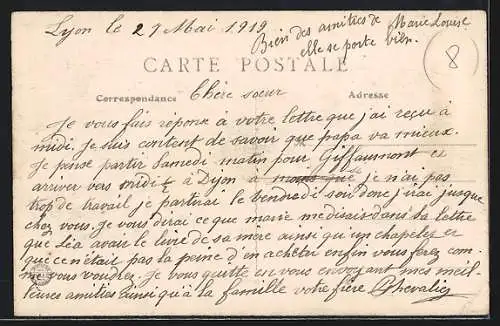 Lyon le 29 Mai 1919
Bien des amitiés de Marie Louise
elle se porte bien.
8
CARTE POSTALE
Correspondance Adresse
Chère sœur
Je vous fais réponse à votre lettre que j'ai reçu à
midi. Je suis content de savoir que papa va mieux.
Je pense partir Samedi matin pour Giffaumont et
arriver vers midi ½ à Dijon à je n'ai pas
trop de travail je partirai le vendredi soir donc j'irai jusque
chez vous. Je vous dirai ce que marie me disait dans sa lettre
que Léa avait le livre de sa mère ainsi qu'un chapelet et
que ce n'était pas la peine d'en acheter enfin vous ferez com-
me vous voudrez. Je vous quitte en vous envoyant mes meil-
leures amitiés ainsi qu'à la famille votre frère Chevalier